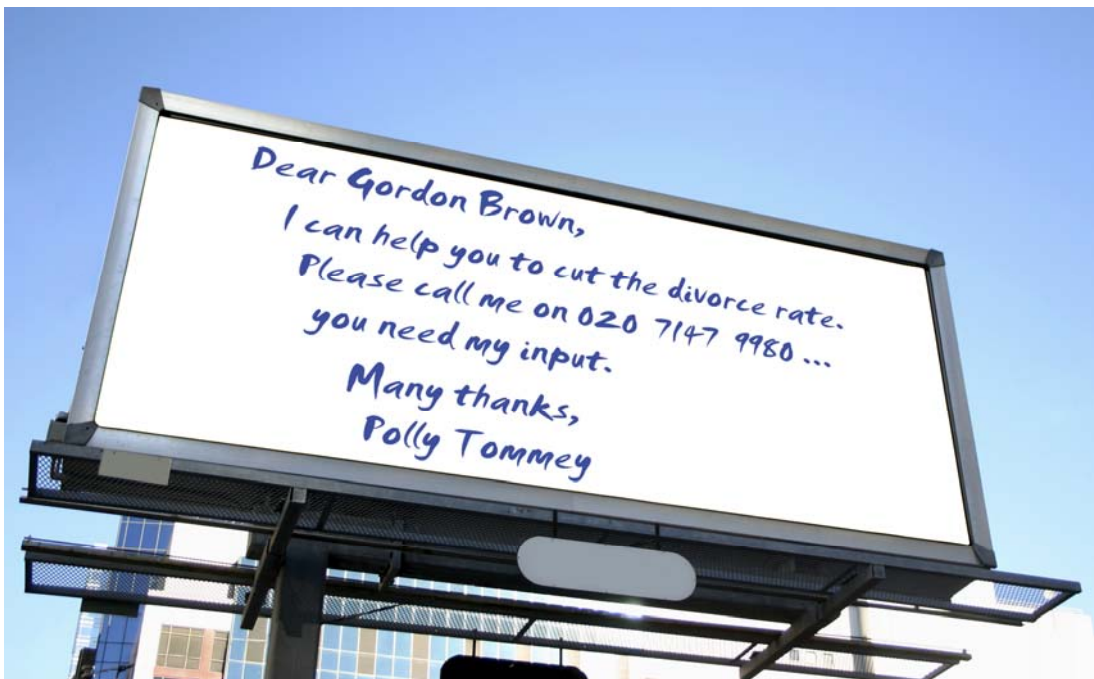 Dear Gordon Brown,
I can help you to cut the divorce rate.
Please call me on 020 7147 9980 ...
you need my input.
Many thanks,
Polly Tommey